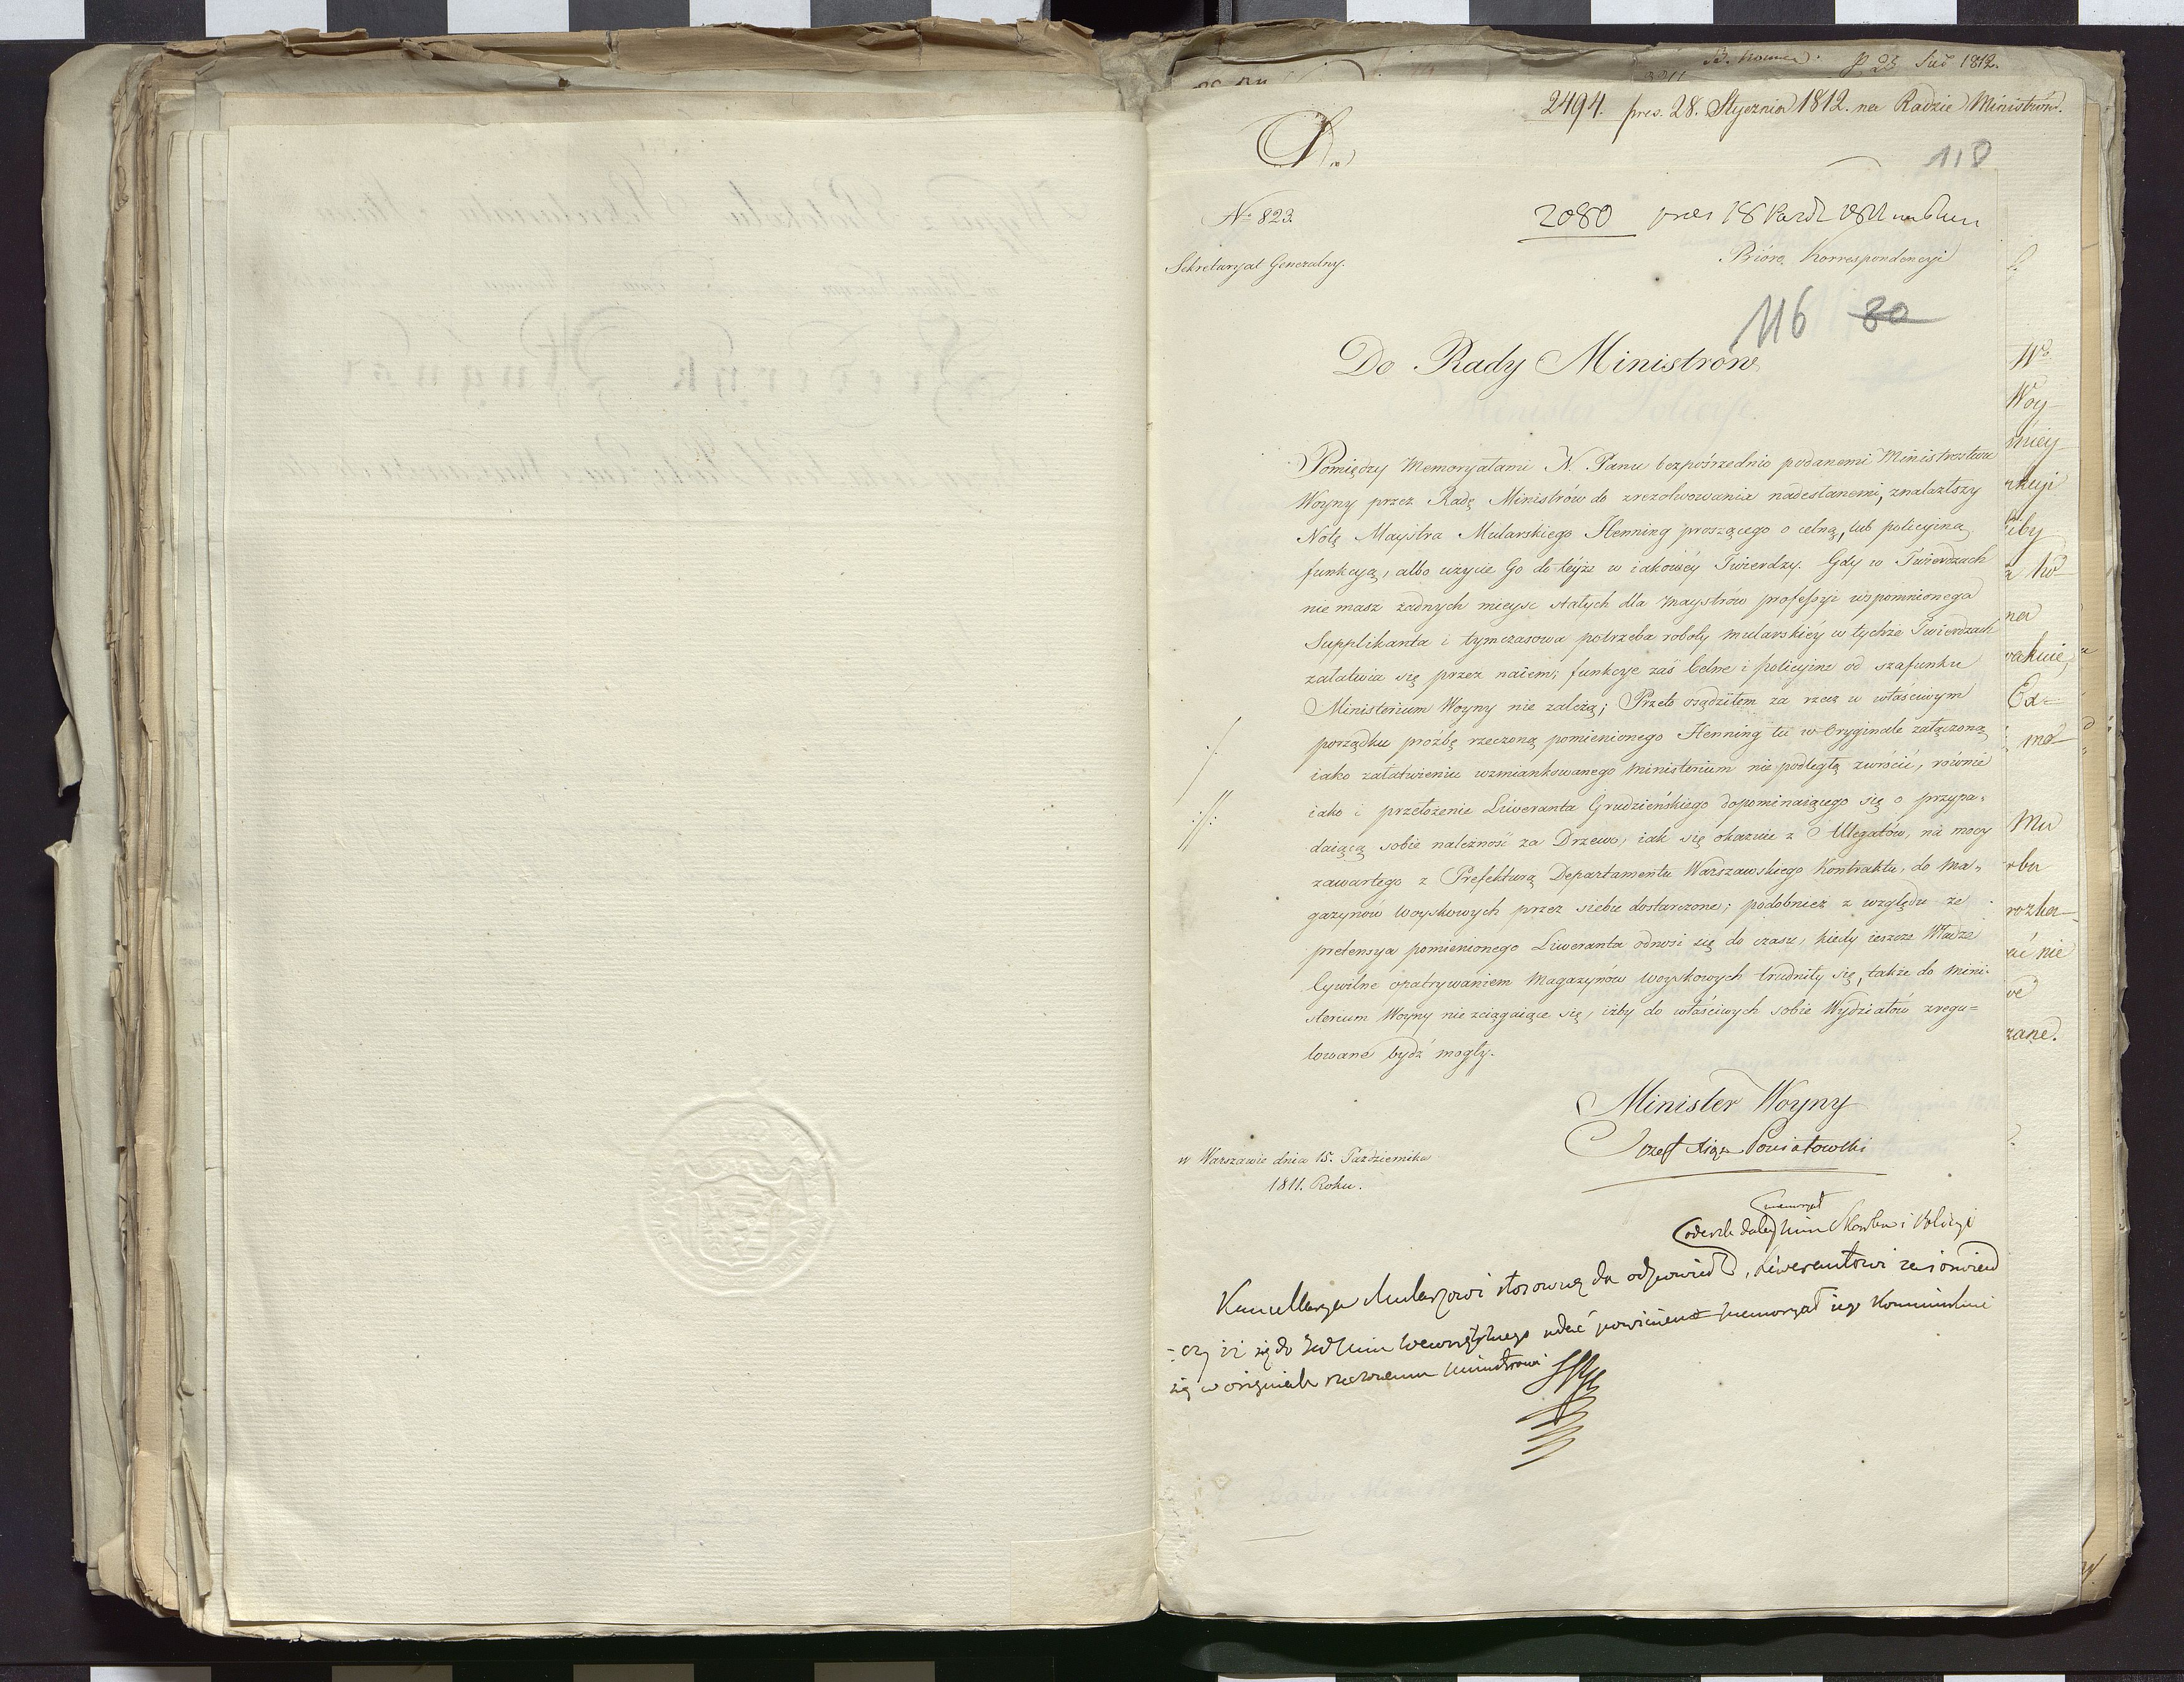 2494. pres. 28. Stycznia 1812. na Radzie Ministrów.
118
Nº 823.
2080 pres 18 Pazdz 1811
Sekretaryat Generalny.
Bióro Korrespondencyi
116 80
Do Rady Ministrów
Pomiędzy Memoryałami N. Panu bezpośrzednio podanemi Ministrostwu
Woyny przez Radę Ministrów do zrezolwowania nadesłanemi, znalazłszy
Notę Maystra Mularskiego Henning proszącego o celną, lub policyiną
funkcyą, albo użycie Go do teyże w iakowéy Twierdzy. Gdy w Twierdzach
nie masz żadnych mieysc stałych dla Maystrów professyi wspomnionego
Supplikanta i tymczasowa potrzeba roboty mularskiéy w tychże Twierdzach
załatwia się przez naiem; funkcye zaś Celne i policyine od szafunku
Ministerium Woyny nie zależą; Przeto osądziłem za rzecz w właściwym
porządku proźbę rzeczoną pomienionego Henning tu w Oryginale załączoną
iako załatwieniu wzmiankowanego Ministerium nie podległą zwrócić, równie
iako i przełożenie Liweranta Grudzieńskiego dopominaiącego się o przypa„
daiącą sobie należność za Drzewo, iak się okazuie z Allegatów, na mocy
zawartego z Prefekturą Departamentu Warszawskiego Kontraktu, do Ma„
gazynów woyskowych przez siebie dostarczone; podobnież z względu że
pretensya pomienionego Liweranta odnosi się do czasu, kiedy ieszcze Władze
Cywilne opatrywaniem Magazynów woyskowych trudniły się, także do Mini„
sterium Woyny nie ściągaiące się, iżby do właściwych sobie Wydziałów zregu=
lowane bydź mogły.
Minister Woyny
Józef Xiąże Poniatowski
w Warszawie dnia 15. Października
1811. Roku.
memoryał
odesle Skarbu i Policyi
Kancellarya Mularzowi stosowną da odpowiedź, Liwerantowi zaś
się do Wewnętrznego udać powinien memoryał iego
się w originale Ministrowi